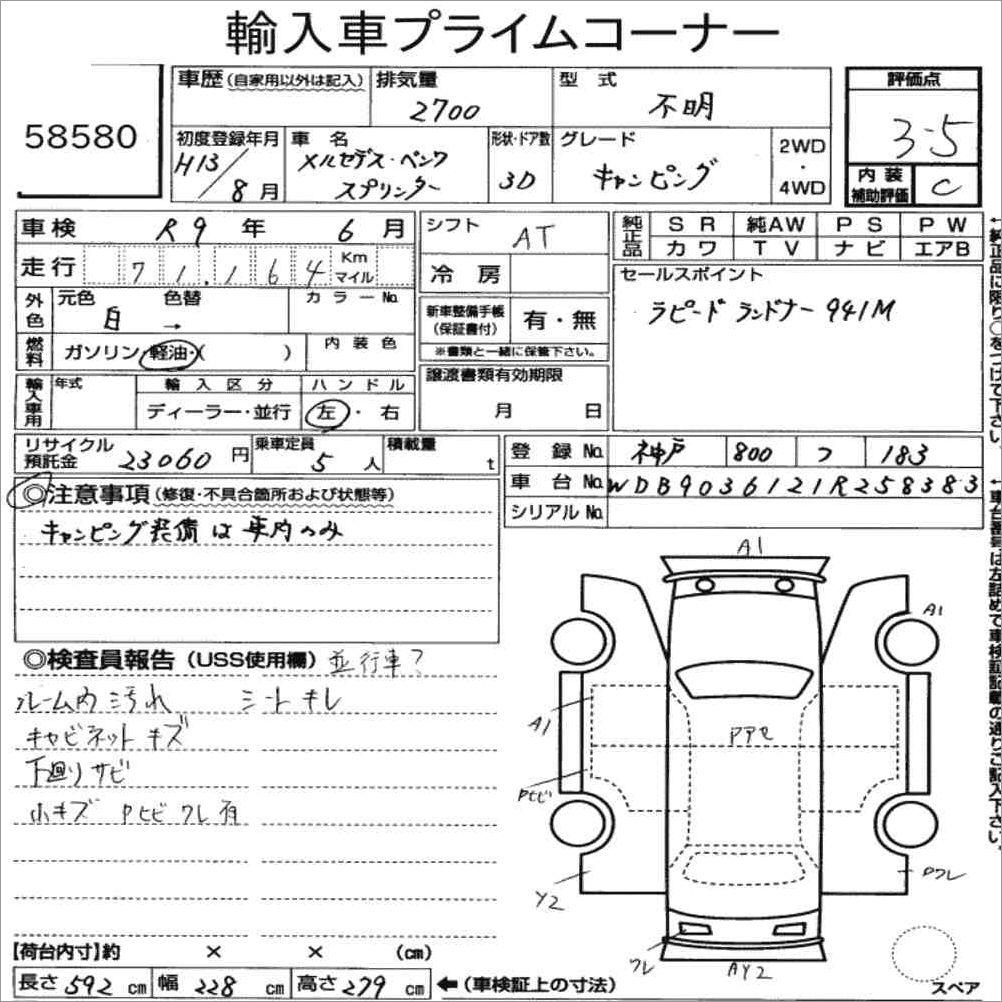 輸入車プライムコーナー
58580
車歴(自家用以外は記入)
排気量
2700
型式
不明
評価点
3.5
初度登録年月
H13/8月
車名
メルセデス・ベンツ
スプリンター
形状・ドア数
3D
グレード
キャンピング
2WD
・
4WD
内装
補助評価
C
車検 R9年 6月
シフト AT
純正品
SR 純AW PS PW
カワ TV ナビ エアB
走行 71,164 Km
マイル
冷房
セールスポイント
ラピード ランドナー 941M
外色
元色 色替 カラーNo.
白 →
新車整備手帳
(保証書付)
有・無
※書類と一緒に保管下さい。
燃料
ガソリン・軽油・( )
内装色
譲渡書類有効期限
月 日
輸入車用
年式
輸入区分
ハンドル
ディーラー・並行
左・右
リサイクル
預託金
23060円
乗車定員
5人
積載量
t
登録No. 神戸 800 つ 183
車台No. WDB9036121R258383
シリアルNo.
◎注意事項(修復・不具合箇所および状態等)
キャンピング装備は車内のみ
◎検査員報告(USS使用欄) 並行車?
ルーム内汚れ シートキレ
キャビネットキズ
下廻りサビ
小キズ Pヒビ ワレ有
A1
A1
A1
Pアセ
Pヒビ
Y2
Pワレ
ワレ
AY2
スペア
【荷台内寸】約 × × (cm)
長さ592cm 幅228cm 高さ279cm
←(車検証上の寸法)
←純正品に限り○をつけて下さい。
←車台番号は左詰めで車検証記載の通りご記入下さい。